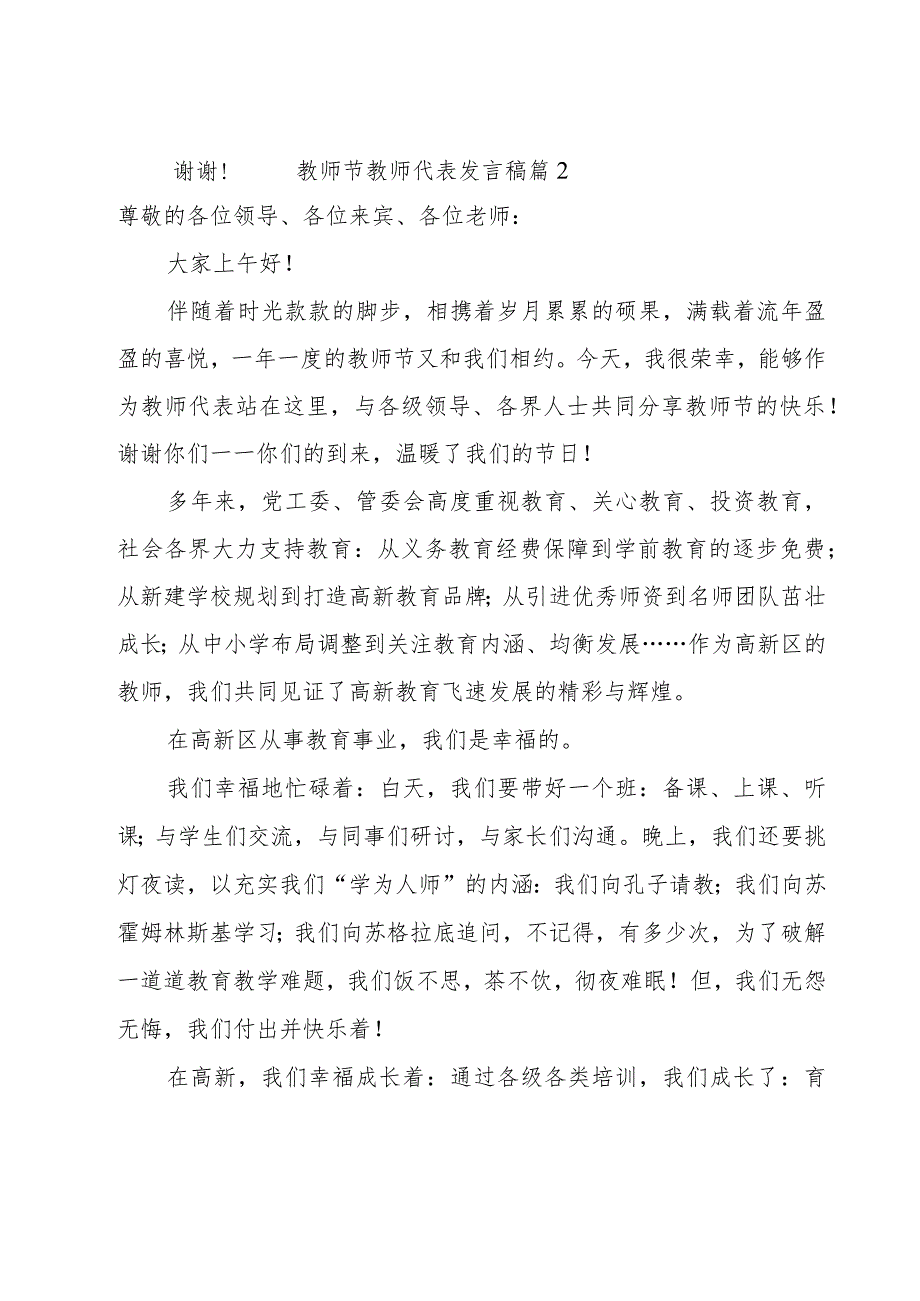 谢谢！ 教师节教师代表发言稿篇 2
尊敬的各位领导、各位来宾、各位老师：
大家上午好！
伴随着时光款款的脚步，相携着岁月累累的硕果，满载着流年盈
盈的喜悦，一年一度的教师节又和我们相约。今天，我很荣幸，能够作
为教师代表站在这里，与各级领导、各界人士共同分享教师节的快乐！
谢谢你们一一你们的到来，温暖了我们的节日！
多年来，党工委、管委会高度重视教育、关心教育、投资教育，
社会各界大力支持教育：从义务教育经费保障到学前教育的逐步免费；
从新建学校规划到打造高新教育品牌；从引进优秀师资到名师团队茁壮
成长；从中小学布局调整到关注教育内涵、均衡发展……作为高新区的
教师，我们共同见证了高新教育飞速发展的精彩与辉煌。
在高新区从事教育事业，我们是幸福的。
我们幸福地忙碌着：白天，我们要带好一个班：备课、上课、听
课；与学生们交流，与同事们研讨，与家长们沟通。晚上，我们还要挑
灯夜读，以充实我们“学为人师”的内涵：我们向孔子请教；我们向苏
霍姆林斯基学习；我们向苏格拉底追问，不记得，有多少次，为了破解
一道道教育教学难题，我们饭不思，茶不饮，彻夜难眠！但，我们无怨
无悔，我们付出并快乐着！
在高新，我们幸福成长着：通过各级各类培训，我们成长了：育